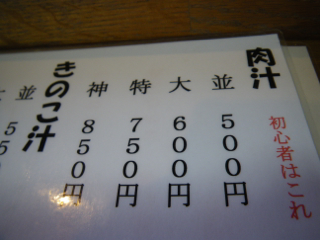 肉汁
初心者はこれ
並 500円
大 600円
特 750円
神 850円
きのこ汁
並 55